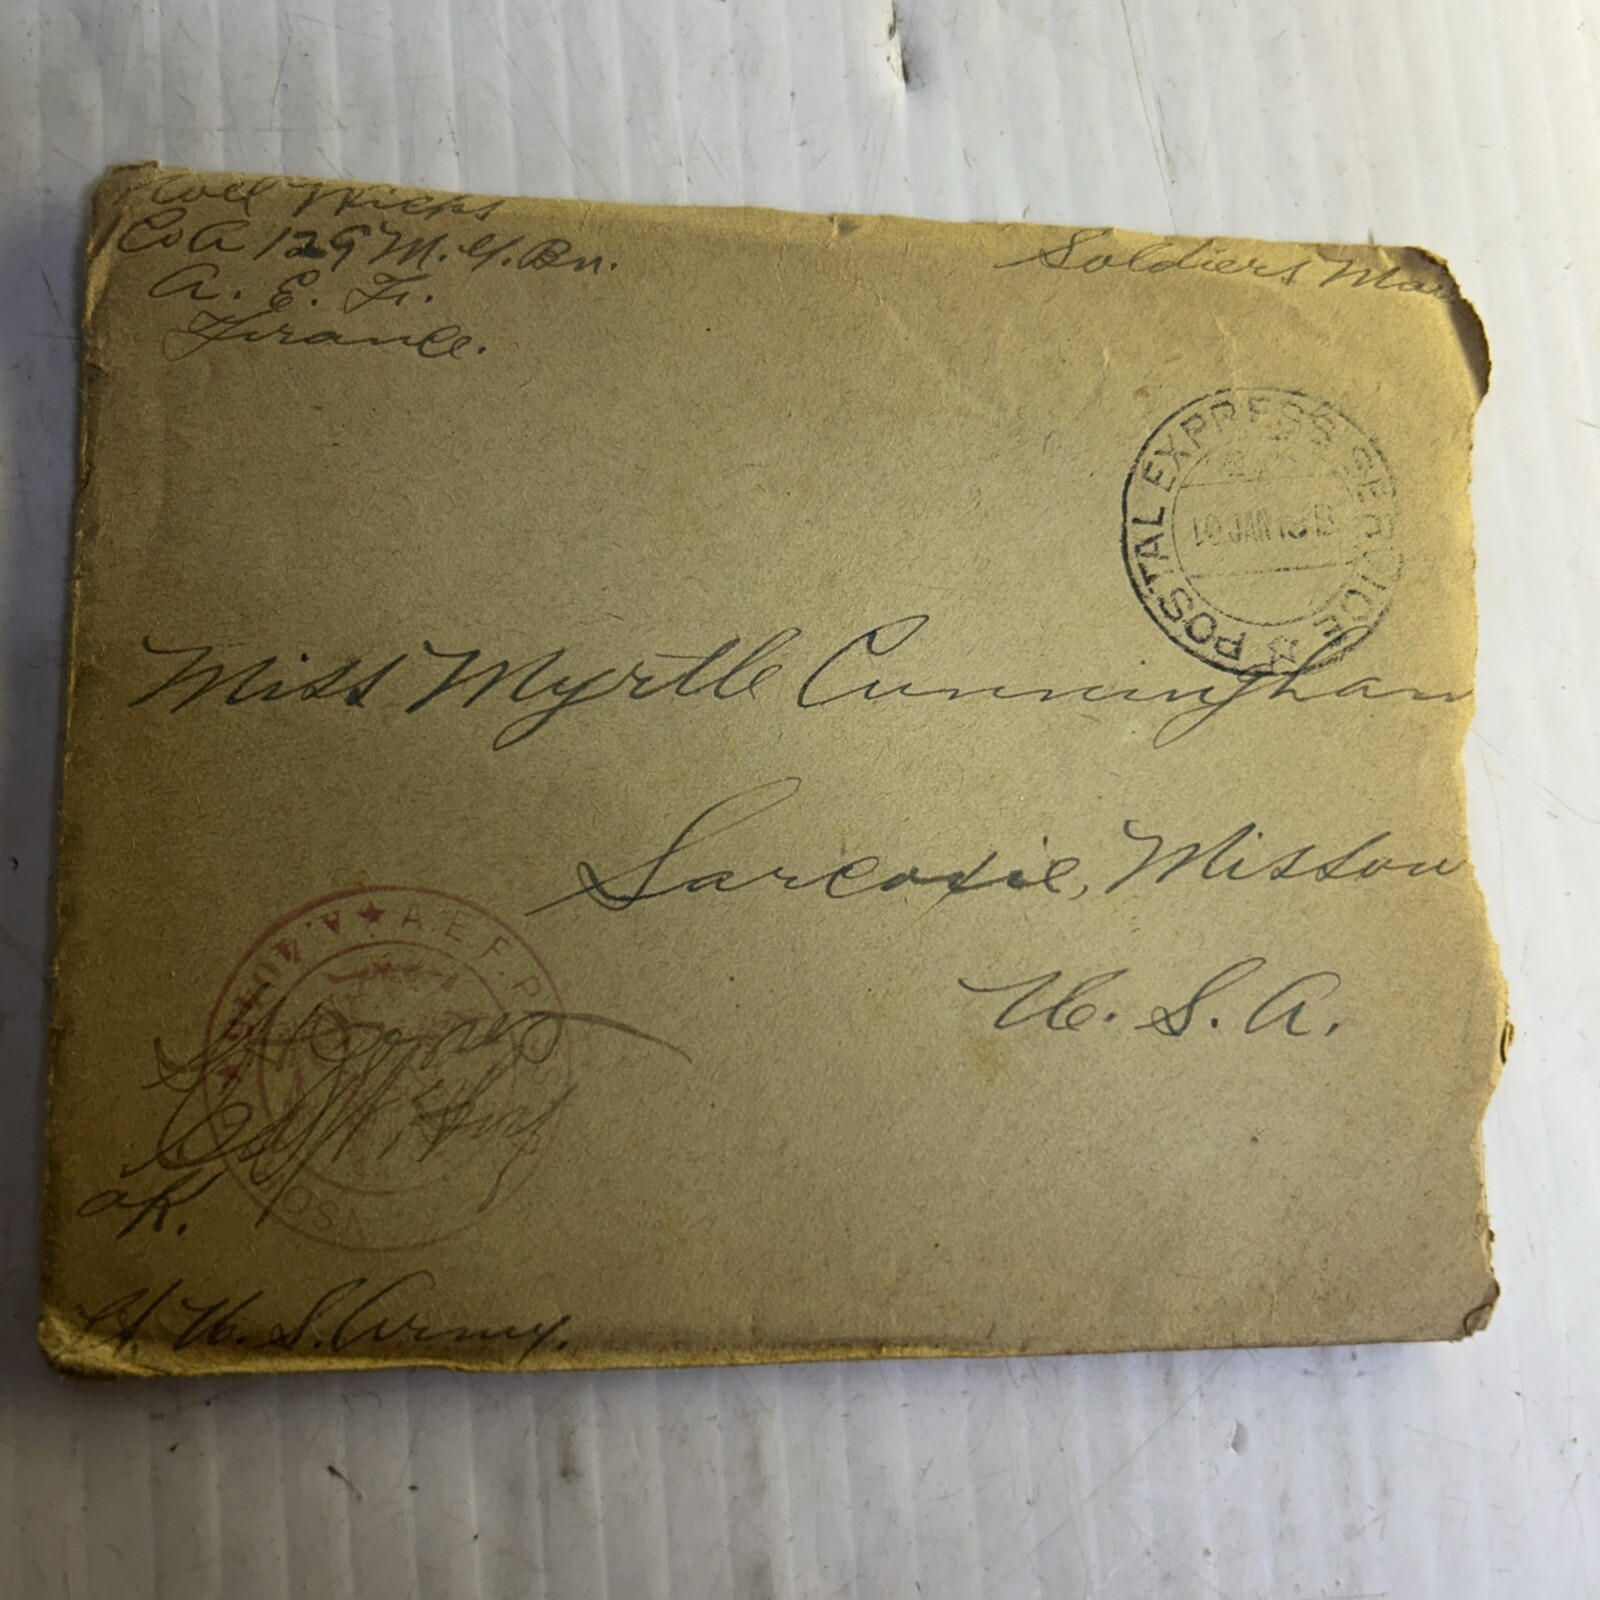 Noel Hicks
Co A 129 M. G. Bn.
A. E. F.
France.
Soldiers Mai
POSTAL EXPRESS SERVICE
10 JAN 1919
Miss Myrtle Cunningham
Sarcoxie, Missou
U. S. A.
A.E.F. PASSED
OK.
U. S. Army.